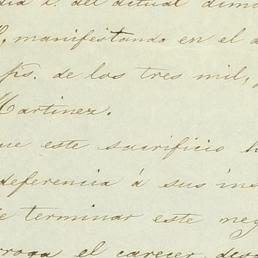 del actual
manifestando en el
ps. de los tres mil,
Martinez.
que este sacrificio
deferencia á sus
terminar este
el carecer